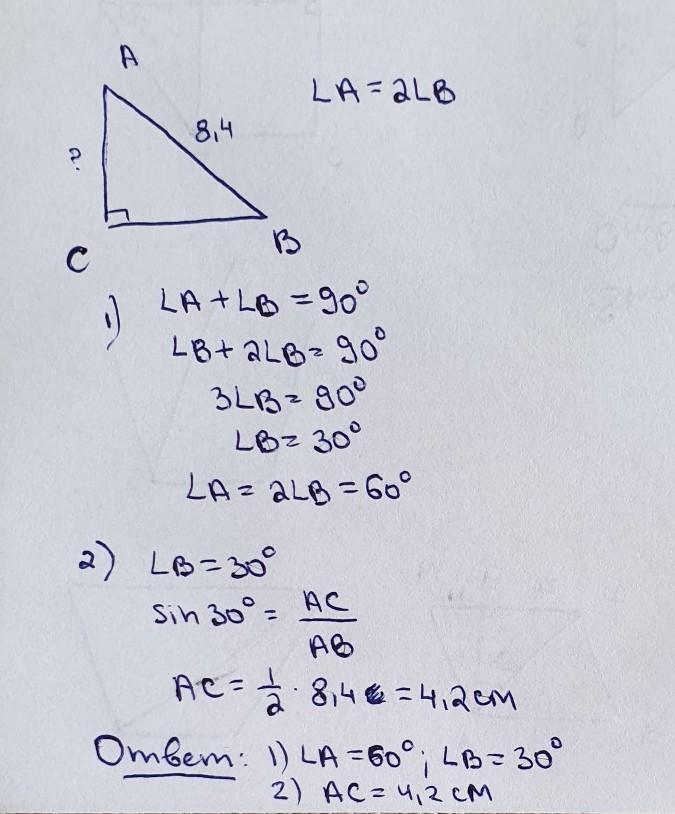 A
∠A = 2∠B
8,4
?
C
B
1) ∠A + ∠B = 90°
∠B + 2∠B = 90°
3∠B = 90°
∠B = 30°
∠A = 2∠B = 60°
2) ∠B = 30°
sin 30° = AC / AB
AC = 1/2 · 8,4 = 4,2 см
Ответ: 1) ∠A = 60°; ∠B = 30°
2) AC = 4,2 см